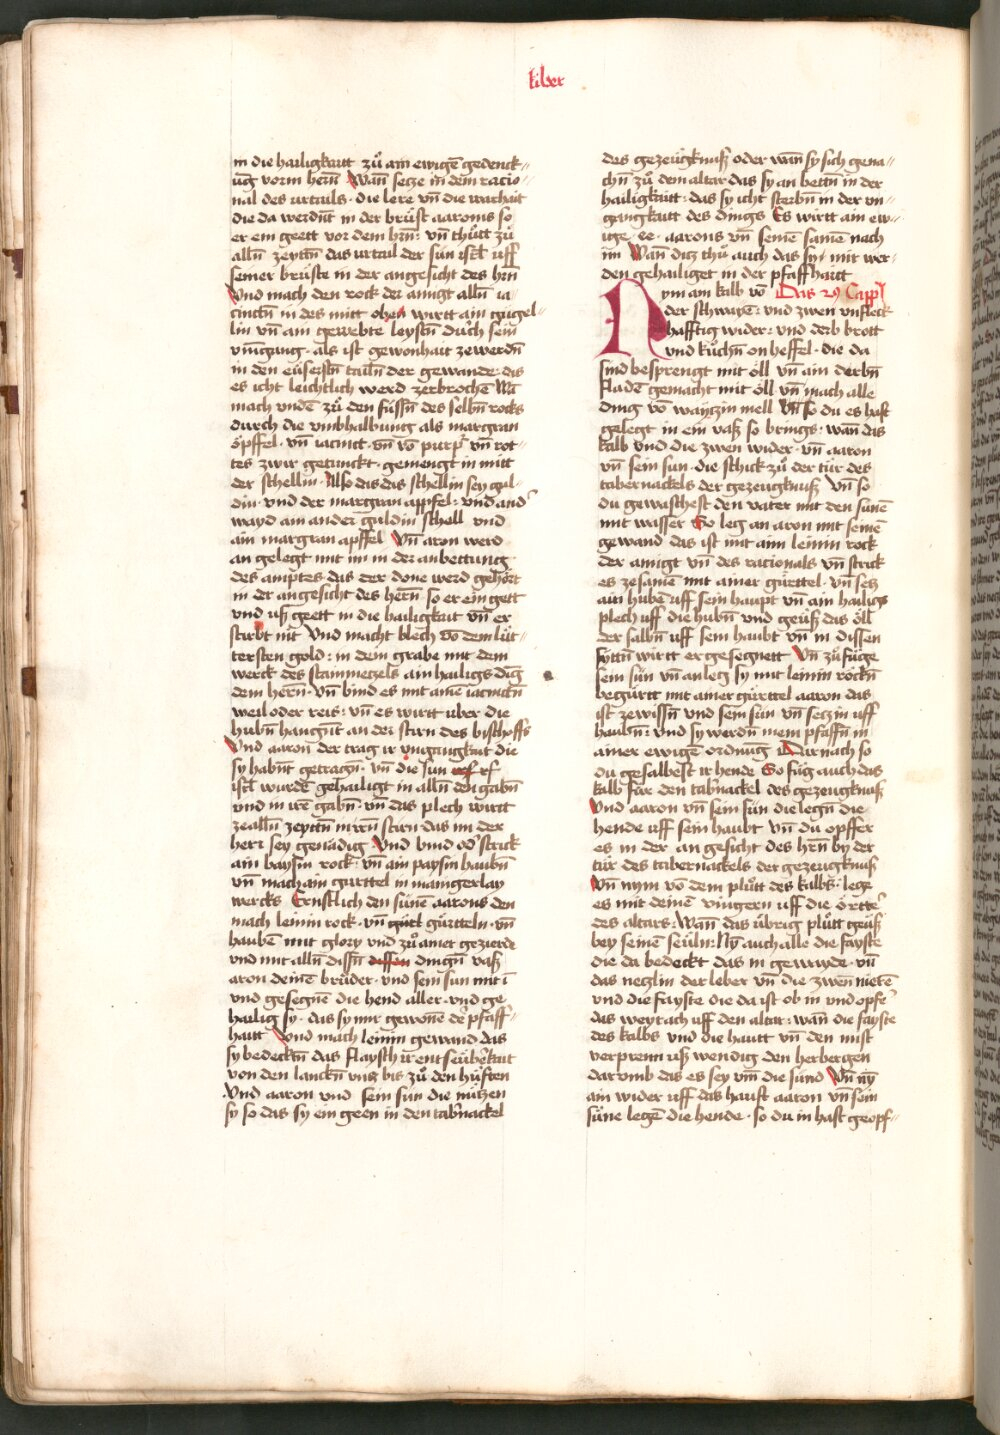 liber
in die hailigkaitt zů ain ewigē gedenck⸗
ūg vorm herñ Wañ setze in dem racio⸗
nal des vrtails · die lere vñ die warhait
die da werdn̄t in der brüst aarons so
er ein geett vor dem hrñ : vñ thůtt zů
alln̄ zeyttn̄ das vrtail der sun isr̄l uff
seiner brüste in der angesicht des hrñ
Vnd mach den rock der amigt alln̄ ia⸗
cinctn̄ in des mitt oben wirtt ain gugel⸗
lin vñ ain gewebte leystn̄ durch sein
vmgang · als ist gewonhait zewerdn̄
in den eüserstn̄ tailn̄ der gewander das
es icht leichtlich werd zerbrochē Wā
mach vndē zů den füssn̄ des selbn̄ rocks
durch die vmbhalbung als margran
öpffel · vñ iacinct · vñ vō purp̄ vñ rot⸗
tes zwir getunckt · gemengt in mitt
der schellin · Also das dis schellin sey gul⸗
din · vnd der margran appfel : vnd and̄
wayd ain ander guldin schell vnd
ain margran apffel Vñ aron werd
an gelegt mit im in der anbettung
des amptes das der done werd gehört
in der angesicht des herñ so er ein gett
vnd uß geett in die hailigkait vñ er
stirbt nit Vnd macht blech vō dem lüt⸗
tersten gold : in dem grabe mit dem
werck des stainmetzels ain hailigs dīg
dem herñ · vñ bind es mit aine iacinctn̄
weil oder reis : vñ es wirtt uber die
hubn̄ hangn̄t an der stirn des bischoffs
Vnd aaron der trag ir vngangkait die
sy habn̄t getragn̄ · vñ die sun vff rf
isr̄l wurdē gehailigt in alln̄ den gabn̄
vnd in irē gabn̄ · vñ das plech wirtt
zealln̄ zeyttn̄ in irn̄ stirn das im der
herr sey genädig Vnd bind od̄ strick
ain baysin rock · vñ ain paysin haubn̄
vñ mach ain gürttel in mangerlay
wercks Ernstlich den sünē aarons den
mach leinin rock · vñ gürt gürtteln · vñ
haubē mit glory vnd zů ainer gezierde
vnd mit alln̄ dissn̄ dissen dingn̄ vaß
aron deinē brüder · vnd sein sun mit ī
vnd gesegnē die hend aller · vnd ge
hailig sy · das sy mir gewonē dē pfaff⸗
haitt Vnd mach leinin gewand das
sy bedecktn̄ das flaysch ir entseüberkait
von den lanckn̄ vntz bis zů den hüften
Vnd aaron vnd sein sun die nützen
sy so das sy ein geen in den tabnackel
des gezeügknuß oder wañ sy sich gena⸗
chn̄ zů dem altar das sy an bettn̄ in der
hailigkaitt : das sy icht sterbn̄ in der vn⸗
gangkaitt des dings Es wirtt ain ew⸗
uige · ee · aarons vñ seinē samē nach
im Wañ ditz thů auch das sy mir wer⸗
den gehailiget in der pfaffhaitt
Nym ain kalb vō Das 29 Capp̄l
der schwayē : vnd zwen vnfleck
hafftig wider : vnd derb brott
vnd kůchn̄ on heffel · die da
sind besprengt mit öll vñ ain derbn̄
fladē gemacht mit öll vñ mach alle
ding vō wayczin mell Vñ so du es hast
gelegt in ein vaß so brings : wañ das
kalb vnd die zwen wider · vñ aaron
vñ sein sun · die schick zů der tür des
tabernackels der gezeugknuß Vñ so
du gewaschest den vater mit den sünē
mit wasser So leg an aron mit seinē
gewand das ist mit aim leinin rock
der amigt vñ des racionals vñ strick
es zesamē mit ainer gürttel · vñ setz
ain hubē uff sein haupt vñ ain hailigs
plech uff die hubn̄ vnd geüß das öll
der salbn̄ uff sein haubt vñ in dissen
syttn̄ wirtt er gesegnett Vñ zů füge
sein sün vñ anleg sy mit leinin röckn̄
begürtt mit ainer gürttel aaron das
ist zewissn̄ vnd sein sun vñ setz in uff
haubn̄ : vnd sy werdn̄ mein pfaffn̄ in
ainer ewigē ordnūg Dar nach so
du gesalbest ir hende So füg auch das
kalb fär den tabnackel des gezeügknuß
Vnd aaron vñ sein sün die legn̄ die
hende uff sein haubt vñ du opffer
es in der an gesicht des hrñ by der
tür des tabernackels der gezeugknuß
Vñ nym vō dem plůtt des kalbs : lege
es mit deinē vingern uff die örtte
des altars : Wañ das übrig plůtt geüß
bey seinē seüln : Nȳ auch alle die fayste
die da bedeckt das in geweyde · vñ
das netzlin der leber vñ die zwen nierē
vnd die fayste die da ist ob in vnd opfē
das weyrach uff den altar : wañ die fayste
des kalbs vnd die hautt vñ den mist
verprenn uß wendig den herbergen
dar omb das es sey vm̄ die sünd Vñ nȳ
ain wider uff das haust aaron vñ sein
süne legē die hende · so du in hast geopf⸗